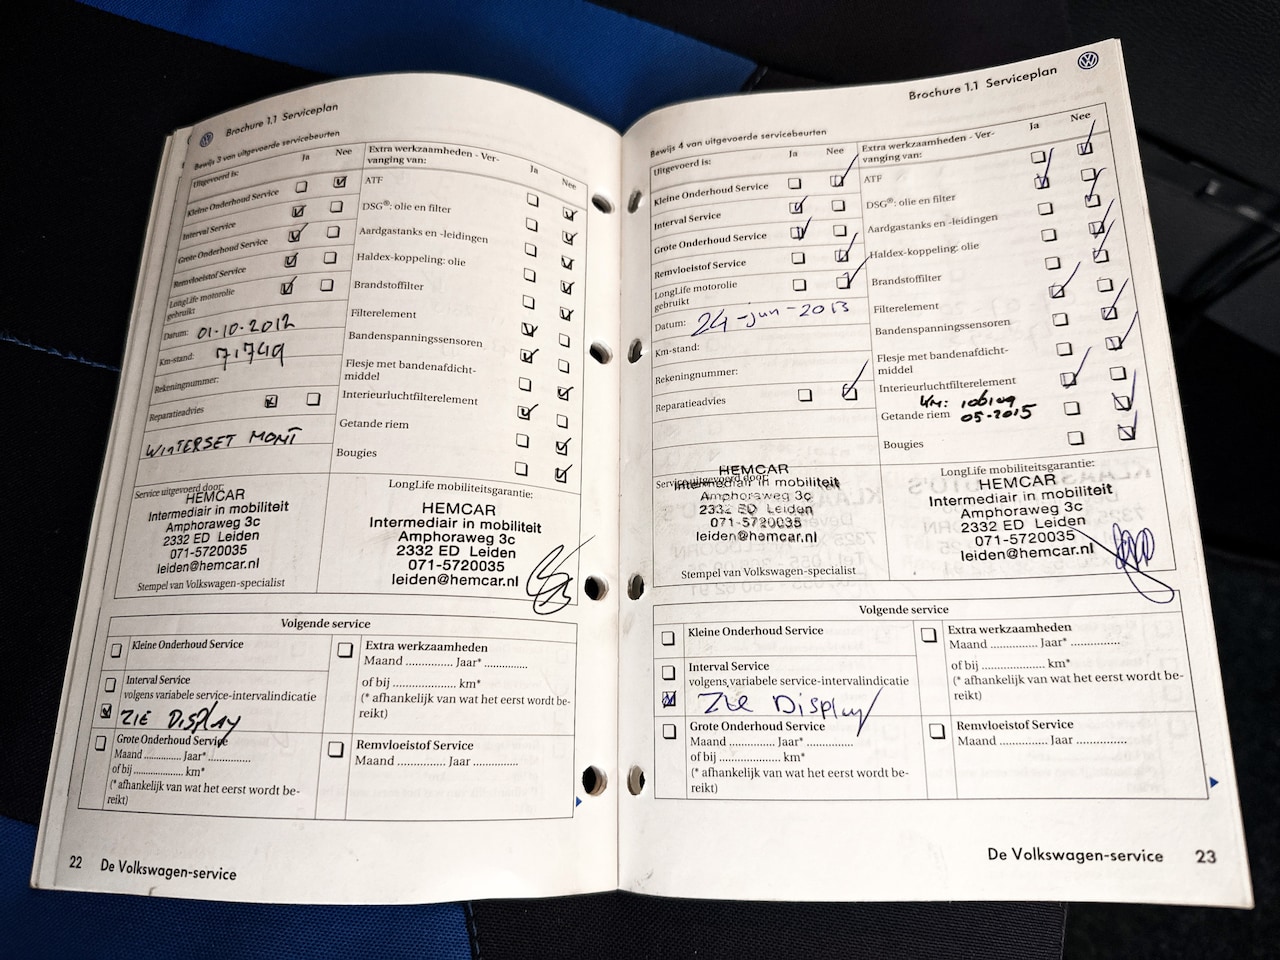 Brochure 1.1 Serviceplan
Bewijs 3 van uitgevoerde servicebeurten
Uitgevoerd is:
Ja
Nee
Kleine Onderhoud Service
Interval Service
Grote Onderhoud Service
Remvloeistof Service
LongLife motorolie
gebruikt
Datum: 01-10-2012
Km-stand: 71749
Rekeningnummer:
Reparatieadvies
WINTERSET MONT
Extra werkzaamheden - Ver-
vanging van:
Ja
Nee
ATF
DSG®: olie en filter
Aardgastanks en -leidingen
Haldex-koppeling: olie
Brandstoffilter
Filterelement
Bandenspanningssensoren
Flesje met bandenafdicht-
middel
Interieurluchtfilterelement
Getande riem
Bougies
Service uitgevoerd door:
HEMCAR
Intermediair in mobiliteit
Amphoraweg 3c
2332 ED Leiden
071-5720035
leiden@hemcar.nl
Stempel van Volkswagen-specialist
LongLife mobiliteitsgarantie:
HEMCAR
Intermediair in mobiliteit
Amphoraweg 3c
2332 ED Leiden
071-5720035
leiden@hemcar.nl
Volgende service
Kleine Onderhoud Service
Interval Service
volgens variabele service-intervalindicatie
ZIE DISPLAY
Grote Onderhoud Service
Maand .............. Jaar* ..............
of bij .................. km*
(* afhankelijk van wat het eerst wordt be-
reikt)
Extra werkzaamheden
Maand .............. Jaar* ..............
of bij .................. km*
(* afhankelijk van wat het eerst wordt be-
reikt)
Remvloeistof Service
Maand .............. Jaar ..............
22 De Volkswagen-service
Brochure 1.1 Serviceplan
Bewijs 4 van uitgevoerde servicebeurten
Uitgevoerd is:
Ja
Nee
Kleine Onderhoud Service
Interval Service
Grote Onderhoud Service
Remvloeistof Service
LongLife motorolie
gebruikt
Datum: 24-jun-2013
Km-stand:
Rekeningnummer:
Reparatieadvies
Extra werkzaamheden - Ver-
vanging van:
Ja
Nee
ATF
DSG®: olie en filter
Aardgastanks en -leidingen
Haldex-koppeling: olie
Brandstoffilter
Filterelement
Bandenspanningssensoren
Flesje met bandenafdicht-
middel
Interieurluchtfilterelement
KM:
Getande riem 05-2015
Bougies
Service uitgevoerd door:
HEMCAR
Intermediair in mobiliteit
Amphoraweg 3c
2332 ED Leiden
071-5720035
leiden@hemcar.nl
Stempel van Volkswagen-specialist
LongLife mobiliteitsgarantie:
HEMCAR
Intermediair in mobiliteit
Amphoraweg 3c
2332 ED Leiden
071-5720035
leiden@hemcar.nl
Volgende service
Kleine Onderhoud Service
Interval Service
volgens variabele service-intervalindicatie
ZIE Display
Grote Onderhoud Service
Maand .............. Jaar* ..............
of bij .................. km*
(* afhankelijk van wat het eerst wordt be-
reikt)
Extra werkzaamheden
Maand .............. Jaar* ..............
of bij .................. km*
(* afhankelijk van wat het eerst wordt be-
reikt)
Remvloeistof Service
Maand .............. Jaar ..............
De Volkswagen-service 23